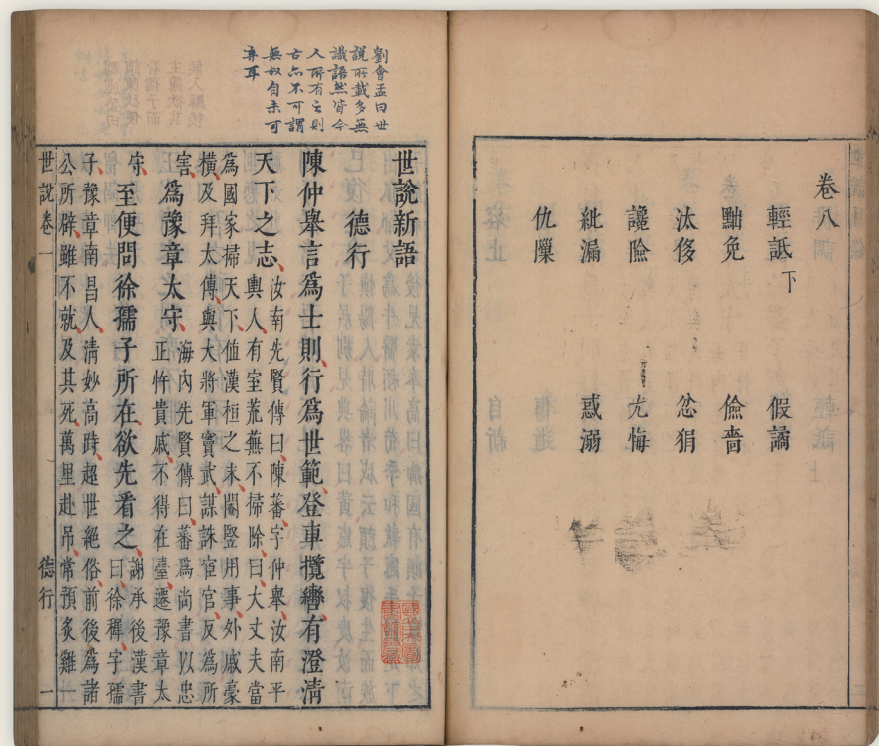 卷八
輕詆下 假譎
黜免 儉嗇
汰侈 忿狷
讒險 尤悔
紕漏 惑溺
仇隟
劉會孟曰世
說所載多無
識語然皆今
人所有之則
古亦不可謂
無奴自未可
弃耳
世說新語
德行
陳仲舉言為士則行為世範登車攬轡有澄清
天下之志汝南先賢傳曰陳蕃字仲舉汝南平
輿人有室荒蕪不掃除曰大丈夫當
為國家掃天下值漢桓之末閹豎用事外戚豪
橫及拜太傅與大將軍竇武謀誅宦官反為所
害為豫章太守海內先賢傳曰蕃為尚書以忠
正忤貴戚不得在臺遷豫章太
守至便問徐孺子所在欲先看之謝承後漢書
曰徐穉字孺
子豫章南昌人清妙高跱超世絕俗前後為諸
公所辟雖不就及其死萬里赴吊常預炙雞一
世說卷一 德行 一